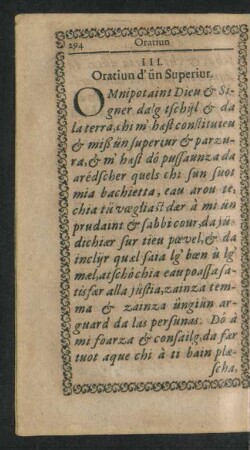 294 Oratiun
III.
Oratiun d'ün Superiur.
OMnipotaint Dieu & Si-
gner dalg tschijl & da
la terra, chi m' hast constituieu
& miß ün superiur & parzu-
ra, & m' hast dô pussaunza da
arédscher quels chi sun suot
mia bachietta, eau arou te,
chia tü vœgliast dær à mi ün
prudaint & sabbi cour, da jü-
dichiær sur tieu pœvel, & da
inclijr quæl saia lg' bœn ù lg'
mæl, atschôchia eau poassa sa-
tisfær alla jüstia, zainza tem-
ma & zainza üngiün ar-
guard da las persunas. Dô à
mi foarza & consailg, da fær
tuot aque chi à ti bain plæ-
scha,